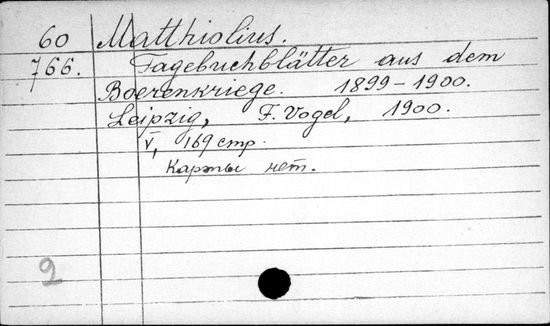 60 Matthiolius.
766. Tagebuchblätter aus dem
Boerenkriege. 1899-1900.
Leipzig, F. Vogel, 1900.
V, 169 стр.
Карты нет.
2